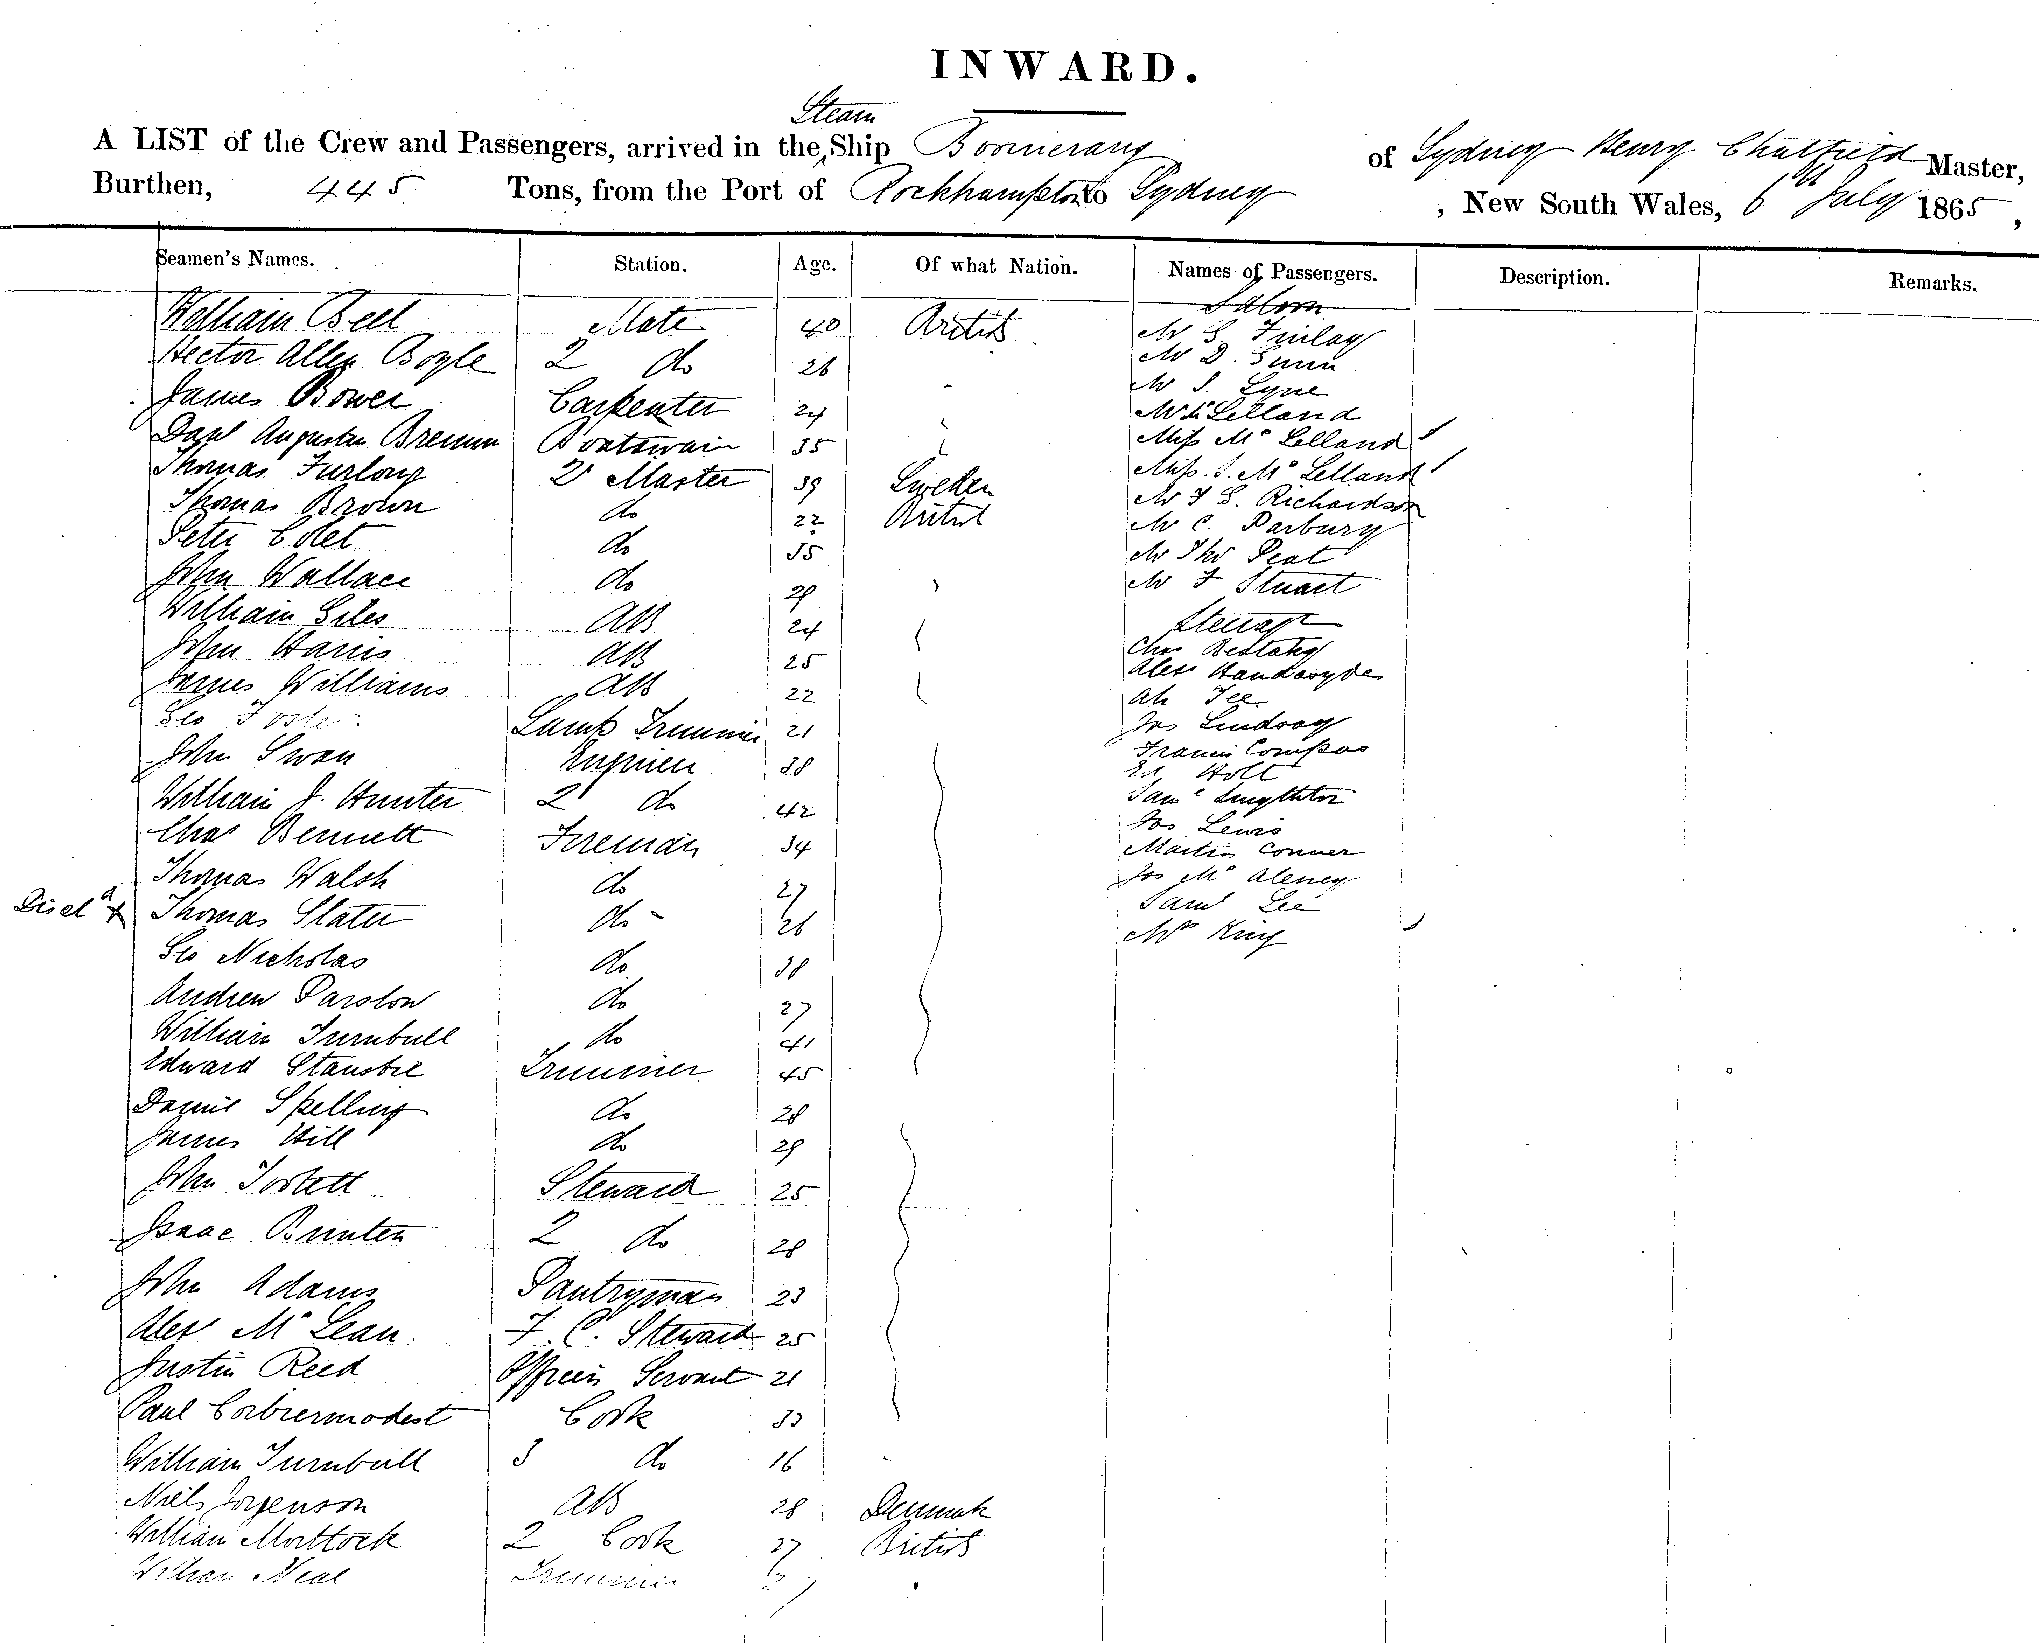 INWARD.
Steam
A LIST of the Crew and Passengers, arrived in the Ship Boomerang of Sydney Henry Chatfield Master,
Burthen, 445 Tons, from the Port of Rockhampton to Sydney , New South Wales, 6th July 1865,
Seamen's Names. Station. Age. Of what Nation. Names of Passengers. Description. Remarks.
Saloon
William Bell Mate 40 British Mr S. Finlay
Hector Allen Boyle 2 do 26 Mr D. Gunn
James Bower Carpenter 24 Mr S. Lyne
Mc Lelland
Augustus Brennan Boatswain 35 Miss Mc Lelland
Thomas Furlong 2r Master 39 Sweden Miss J. Mc Lelland
Thomas Brown do 22 British Mr F G. Richardson
Peter Colet do 35 Mr C. Parbury
Mr Thos Peat
John Wallace do 29 Mr F Stuart
William Giles AB 24 Steerage
John Harris AB 25 Chas
James Williams AB 22 Alex Handasyde
Ah Fee
Geo Foster Lamp Trimmer 21 Jas Lindsay
John Swan Engineer 38 Francis Compas
Ed Holt
William J. Hunter 2 do 42 Saml
Chas Bennett Fireman 34 Jos Lewis
Martin Conner
Thomas Walsh do 27 Jos Mc Aleney
Discd x Thomas Slater do 26 Saml Lee
Geo Nicholas do 38 Mrs King
Andrew Parslow do 27
William Turnbull do 41
Edward Stansbie Trimmer 45
Daniel Spelling do 28
James Hill do 29
John Toskett Steward 25
Isaac Bunten 2 do 28
John Adams Pantryman 23
Alex Mc Lean F. C. Steward 25
Justin Reed Officers Servant 21
Paul Corbiermodest Cook 33
William Turnbull 3 do 16
Niels Jorgenson AB 28 Denmark
William Mortlock 2 Cook 27 British
William Neal Trimmer